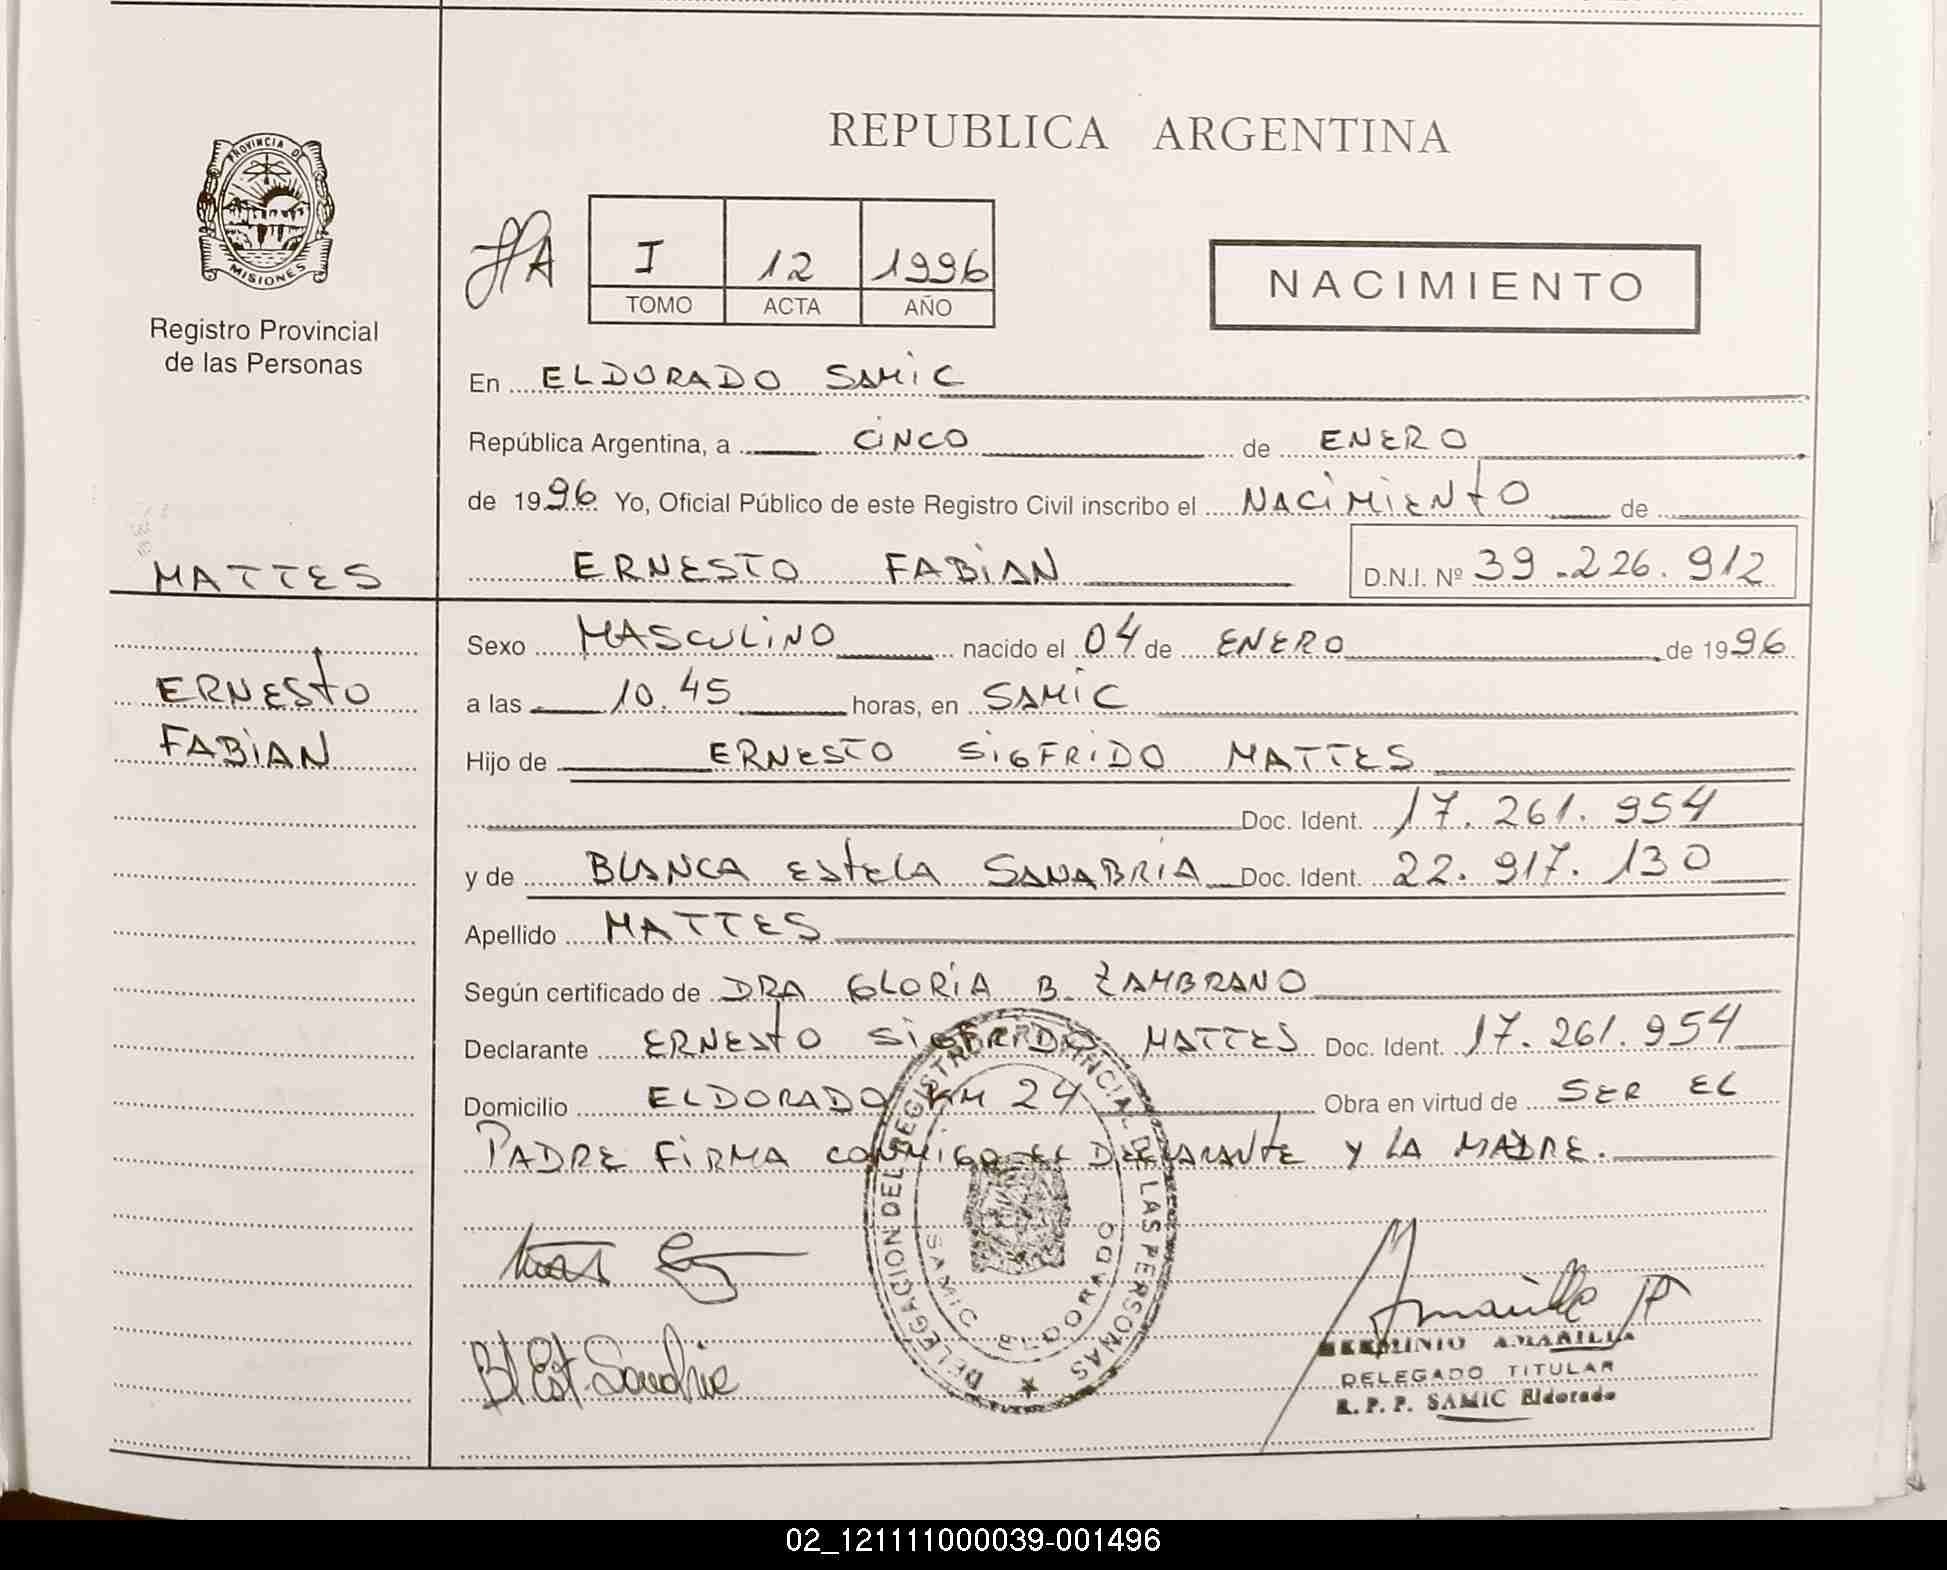 REPUBLICA ARGENTINA
PROVINCIA D
MISIONES
Registro Provincial
de las Personas
I 12 1996
TOMO ACTA AÑO
NACIMIENTO
En ELDORADO SAMIC
República Argentina, a CINCO de ENERO
de 1996 Yo, Oficial Público de este Registro Civil inscribo el NACIMIENTO de
MATTES
ERNESTO FABIAN D.N.I. Nº 39.226.912
ERNESTO
FABIAN
Sexo MASCULINO nacido el 04 de ENERO de 1996
a las 10.45 horas, en SAMIC
Hijo de ERNESTO SIGFRIDO MATTES
Doc. Ident. 17.261.954
y de BLANCA ESTELA SANABRIA Doc. Ident. 22.917.130
Apellido MATTES
Según certificado de DRA GLORIA B. ZAMBRANO
Declarante ERNESTO SIGFRIDO MATTES Doc. Ident. 17.261.954
Domicilio ELDORADO KM 24 Obra en virtud de SER EL
PADRE FIRMA CONMIGO EL DECLARANTE Y LA MADRE.
DELEGACION DEL REGISTRO PROVINCIAL DE LAS PERSONAS
SAMIC ELDORADO
HERMINIO AMARILLA
DELEGADO TITULAR
R. P. P. SAMIC Eldorado
02_121111000039-001496